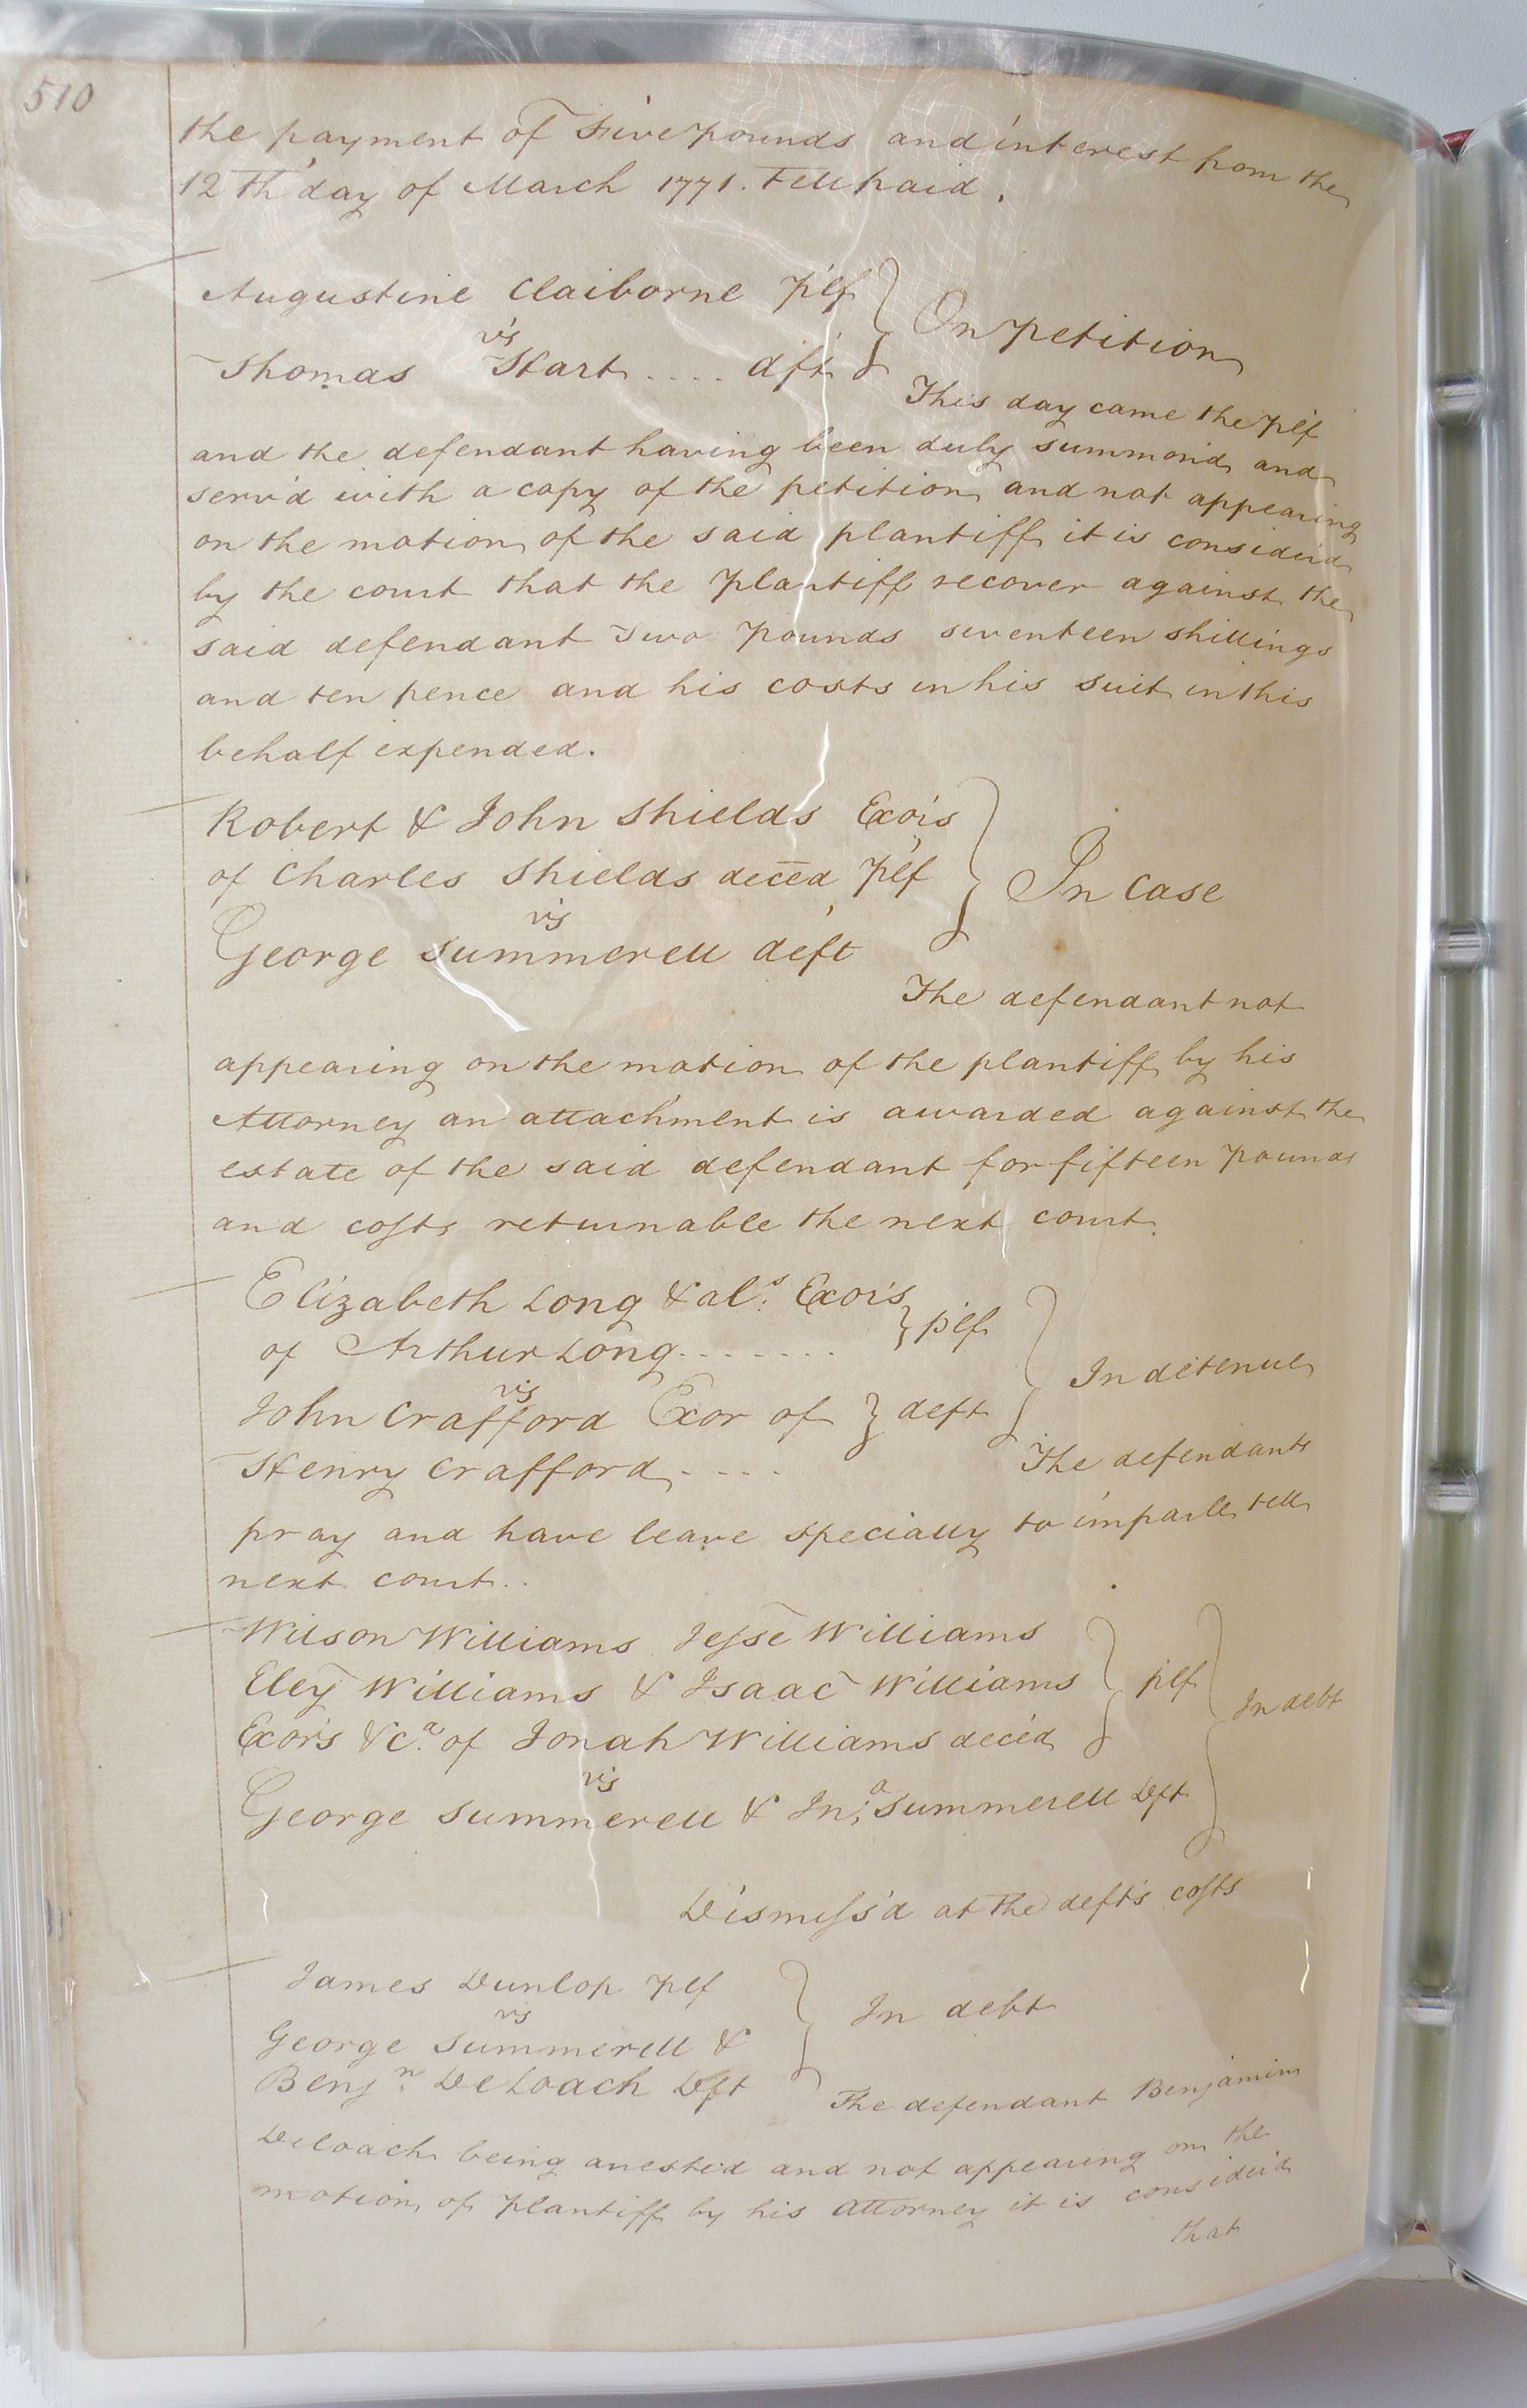 510
the payment of Five pounds and interest from the
12th day of March 1771. Till paid.
Augustine Claiborne plf
vs
Thomas Hart .... dft
On petition
This day came the plf
and the defendant having been duly summon'd and
serv'd with a copy of the petition and not appearing
on the motion of the said plantiff it is consider'd
by the court that the plantiff recover against the
said defendant Two pounds seventeen shillings
and ten pence and his costs in his suit in this
behalf expended.
Robert & John Shields Exo'rs
of Charles Shields deced plf
vs
George Summerell deft
In Case
The defendant not
appearing on the motion of the plantiff by his
Attorney an attachment is awarded against the
estate of the said defendant for fifteen pounds
and costs returnable the next court.
Elizabeth Long & als. Exo'rs
of Arthur Long .......
plf
vs
John Crafford Exor of
Henry Crafford ....
deft
In detenue
The defendants
pray and have leave specially to imparle till
next court..
Wilson Williams Jesse Williams
Eley Williams & Isaac Williams
Exo'rs &ca. of Jonah Williams dece'd
plf
vs
George Summerell & Jno. Summerell Dft
In debt
Dismiss'd at the deft's costs
James Dunlop plf
vs
George Summerell &
Benjn. DeLoach Dft
In debt
The defendant Benjamin
DeLoach being arested and not appearing on the
motion of plantiff by his Attorney it is consider'd
that